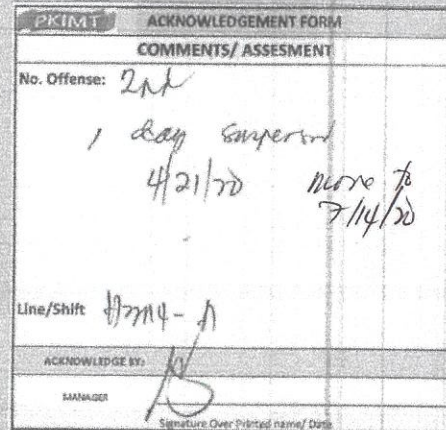 PKIMT ACKNOWLEDGEMENT FORM
COMMENTS/ ASSESMENT
No. Offense: 2nd
1 day suspend
4/21/20 move to
7/14/20
Line/Shift
ACKNOWLEDGE BY:
MANAGER
Signature Over Printed name/ Date